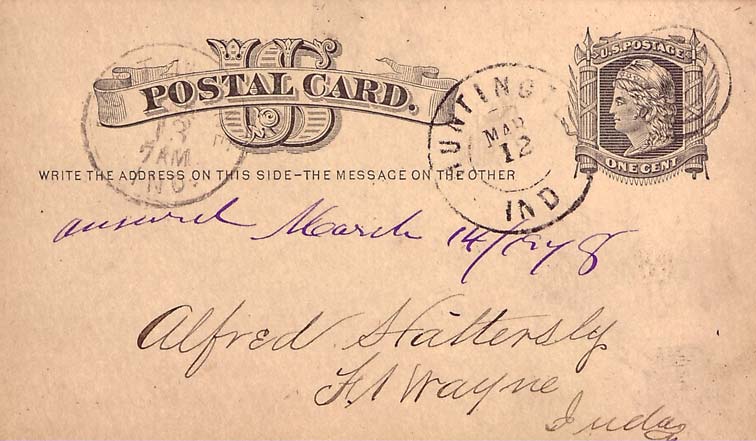 U.S. POSTAGE
US
POSTAL CARD.
ONE CENT
HUNTINGT
MAR
12
IND
13
7 AM
IND.
WRITE THE ADDRESS ON THIS SIDE–THE MESSAGE ON THE OTHER
March 14/78
Alfred Hattersly
Ft Wayne
Inda